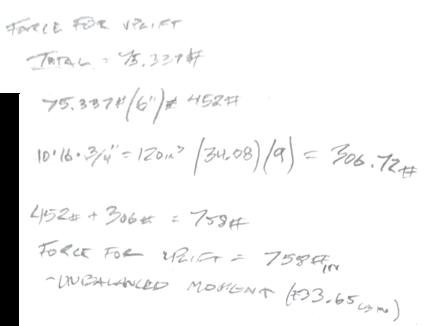 FORCE FOR UPLIFT
TOTAL = 75.337#
75.337#(6") = 452#
10·16·3/4" = 120in³ (34.08)(9) = 306.72#
452# + 306# = 758#
FORCE FOR UPLIFT = 758# IN
-UNBALANCED MOMENT